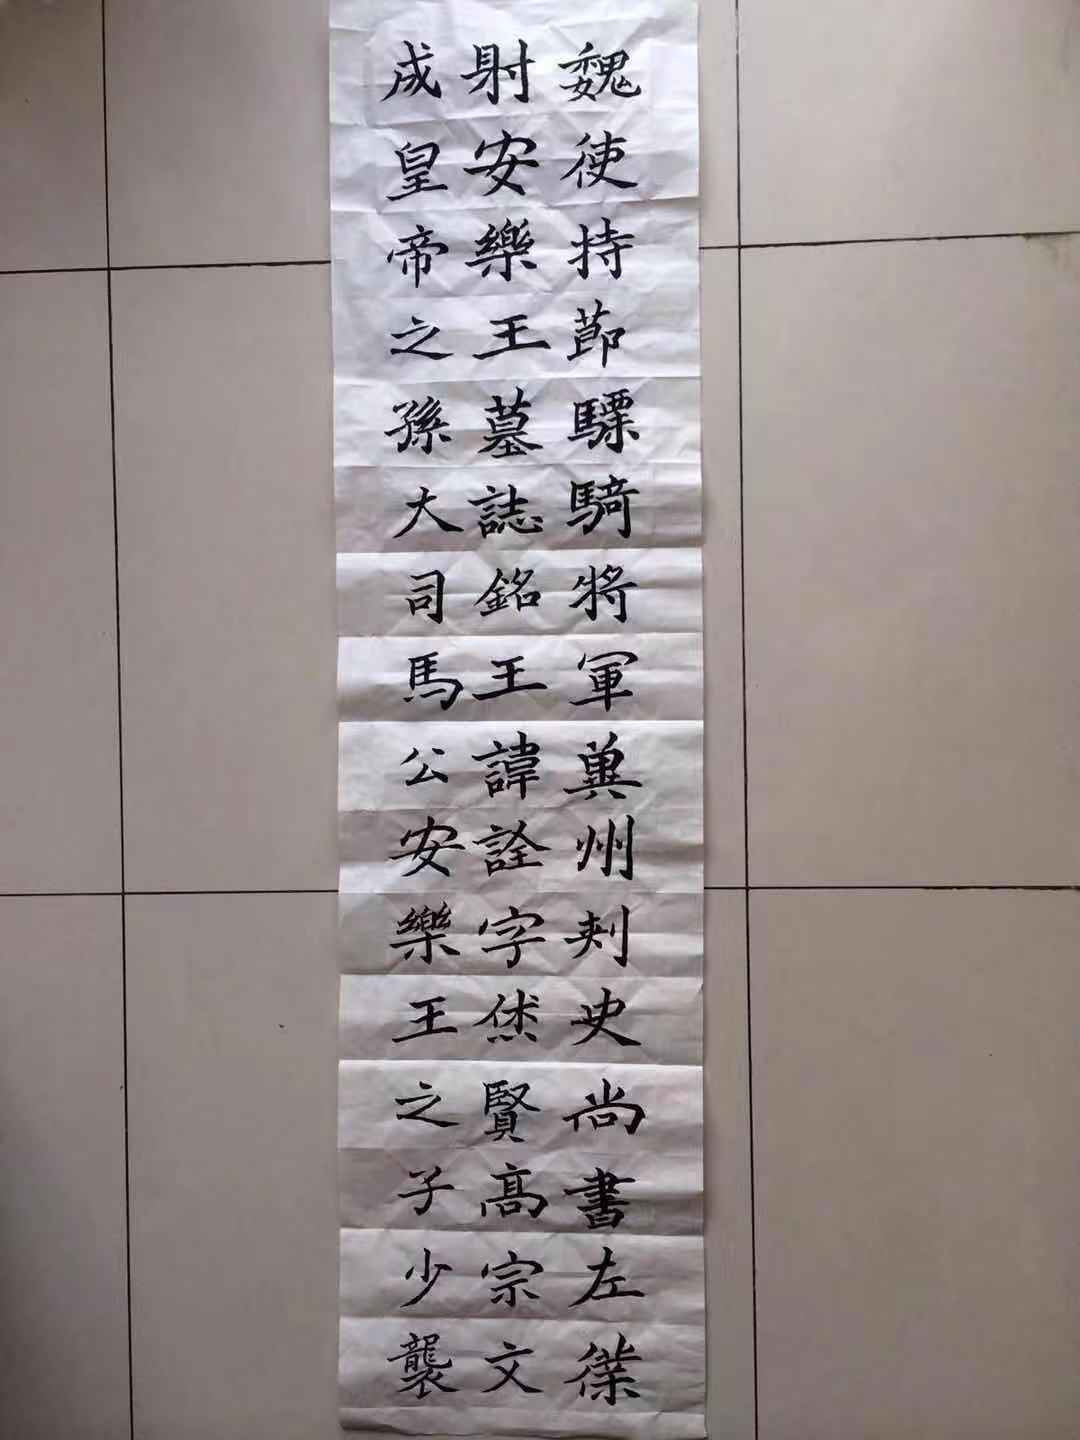 魏使持節驃騎將軍冀州刾史尚書左僕
射安樂王墓誌銘王諱詮字休賢高宗文
成皇帝之孫大司馬公安樂王之子少襲